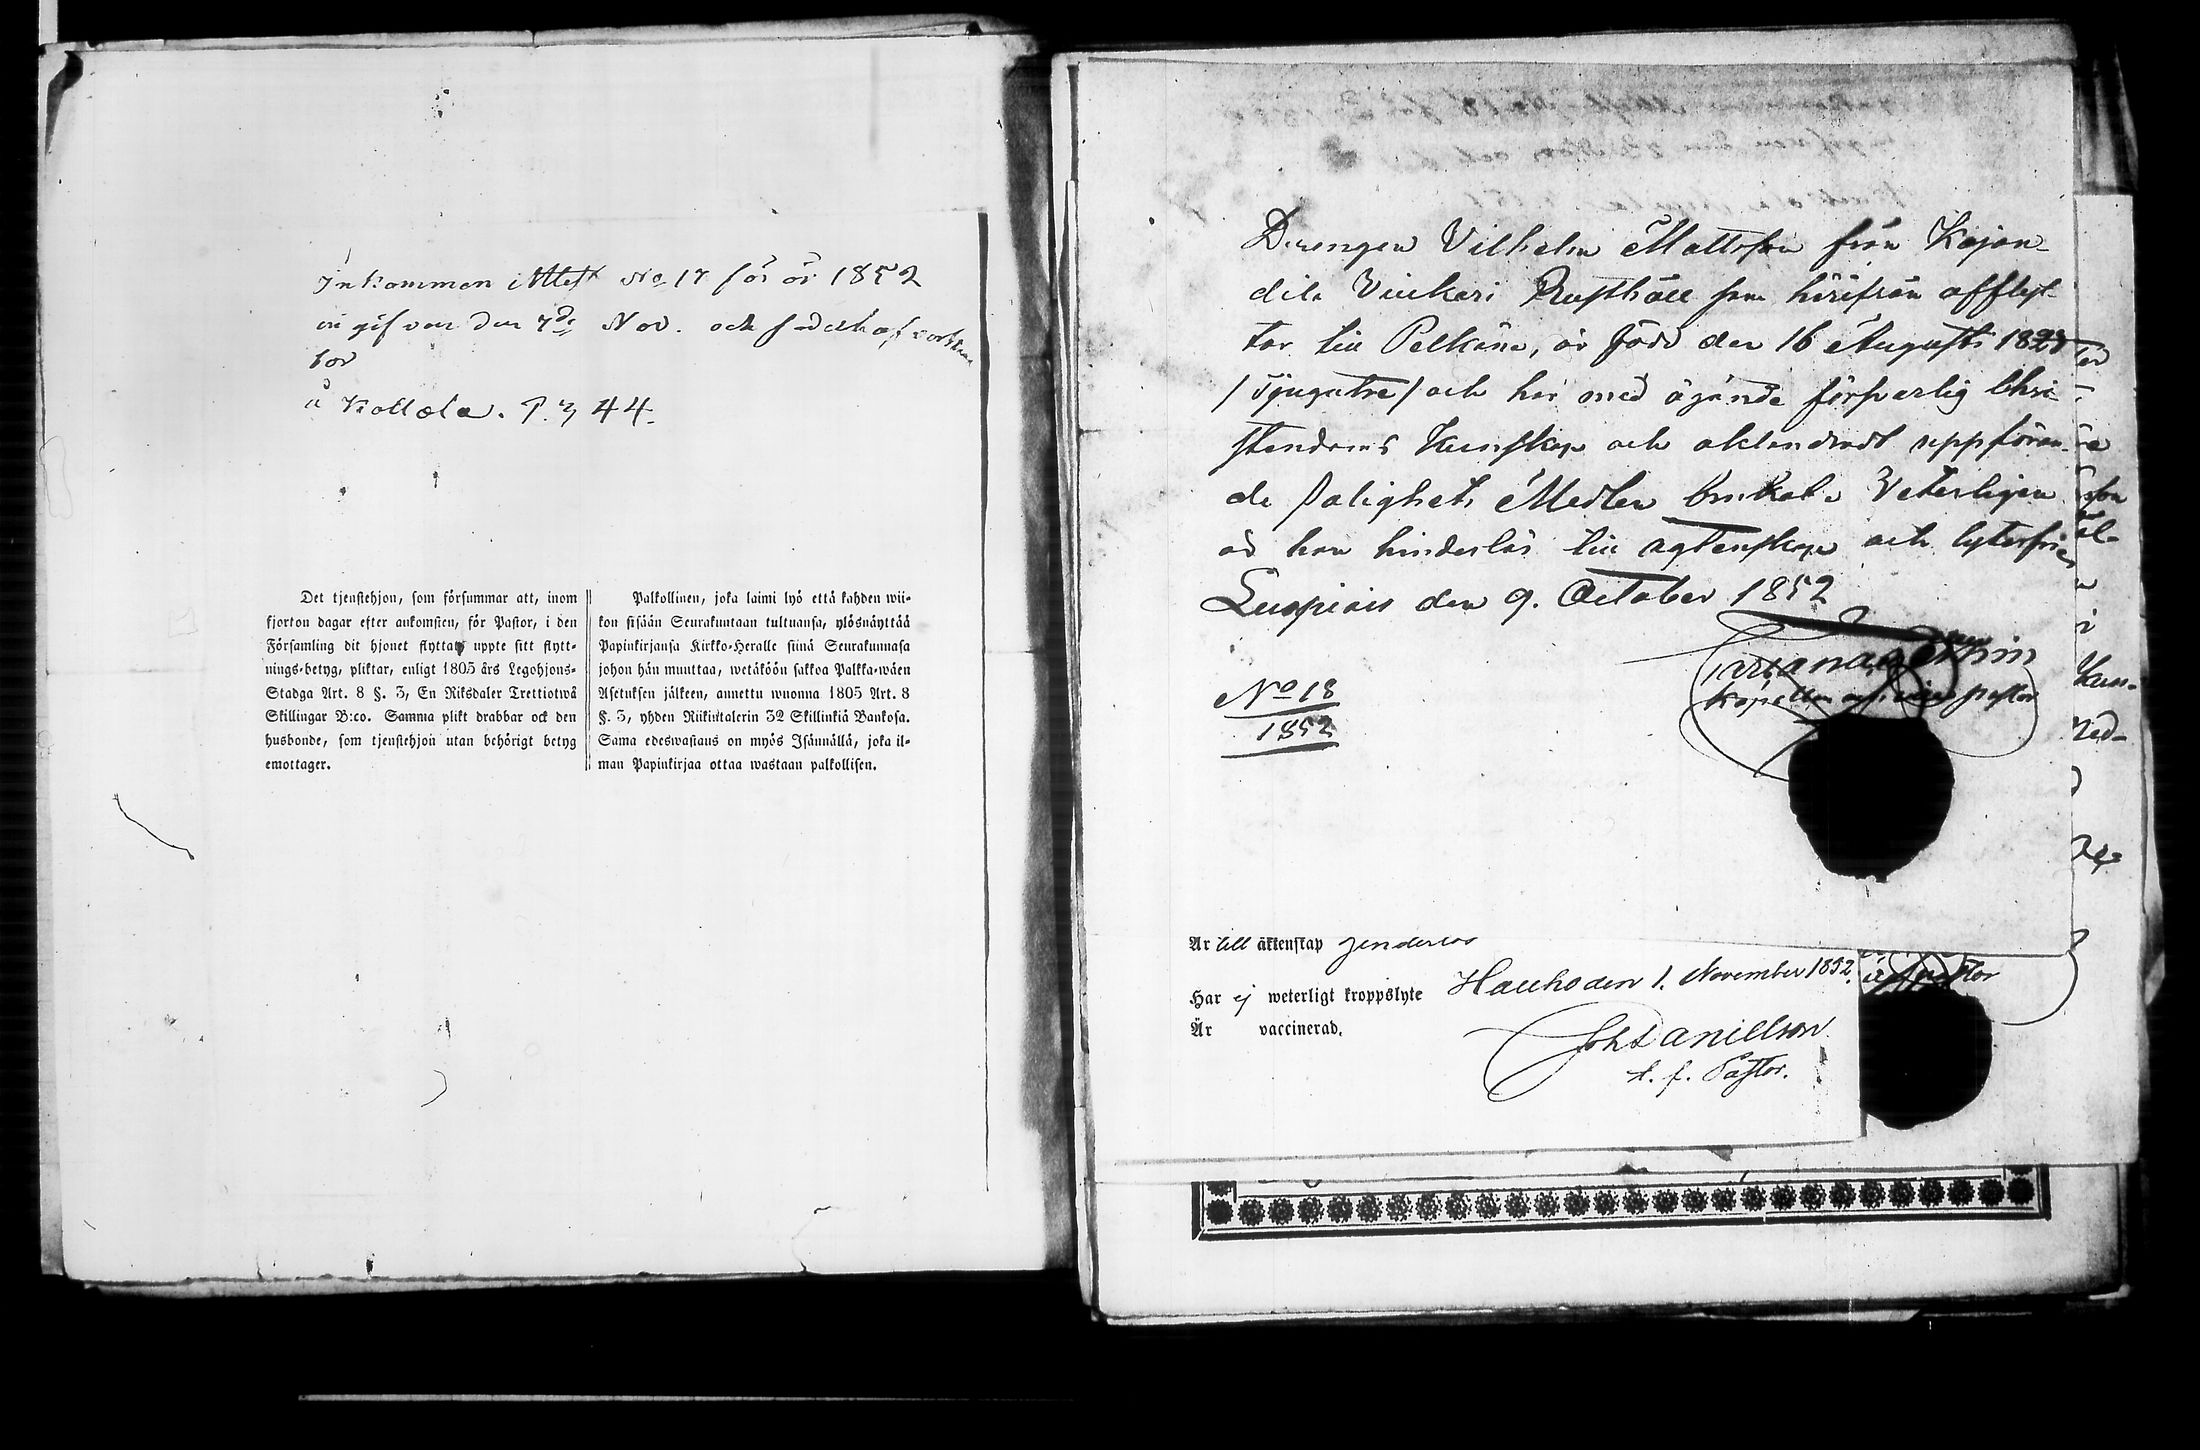 Inkommen Attest No 17 för år 1852
in gifven den 7de Nov. och
tor
å Kollola. P. 44.
Det tjenstehjon, som försummar att, inom
fjorton dagar efter ankomsten, för Pastor, i den
Församling dit hjonet flyttat, uppte sitt flytt-
nings-betyg, pliktar, enligt 1805 års Legohjons-
Stadga Art. 8 §. 3, En Riksdaler Trettiotwå
Skillingar B:co. Samma plikt drabbar ock den
husbonde, som tjenstehjon utan behörigt betyg
emottager.
Palkollinen, joka laimi lyö että kahden wii-
kon sisään Seurakuntaan tultuansa, ylösnäyttää
Papinkirjansa Kirkko-Heralle siinä Seurakunnasa
johon hän muuttaa, wetäköön sakkoa Palkka-wäen
Asetuksen jälkeen, annettu wuonna 1805 Art. 8
§. 3, yhden Riikintalerin 32 Skillinkiä Bankosa.
Sama edeswastaus on myös Isännällä, joka il-
man Papinkirjaa ottaa wastaan palkollisen.
Drengen Vilhelm Mattsson från Kajan-
dila Rusthåll som härifrån afflyt-
tar till Pelkäne, är född den 16 Augusti 1823
/Tjugutre/ och har med ägande försvarlig Chri-
stendoms Kunskap och oklandradt uppföran-
de Salighets Medlen brukat. Veterligen
är han hinderlös till ägtenskap och lytesfri
Luopiois den 9. October 1852
Kapellan och vice pastor
No 18
1852
Är till äktenskap hinderlös
Har ej weterligt kroppslyte
Är vaccinerad.
Hauho den 1. November 1852.
Joh Danielson
t. f. Pastor.